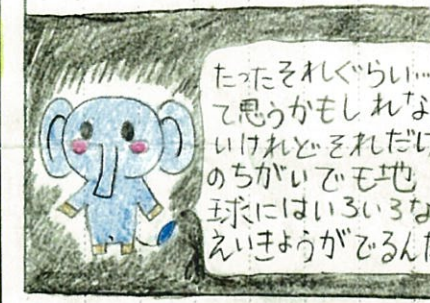 たったそれぐらい…
て思うかもしれな
いけれどそれだけ
のちがいでも地
球にはいろいろな
えいきょうがでるんだ